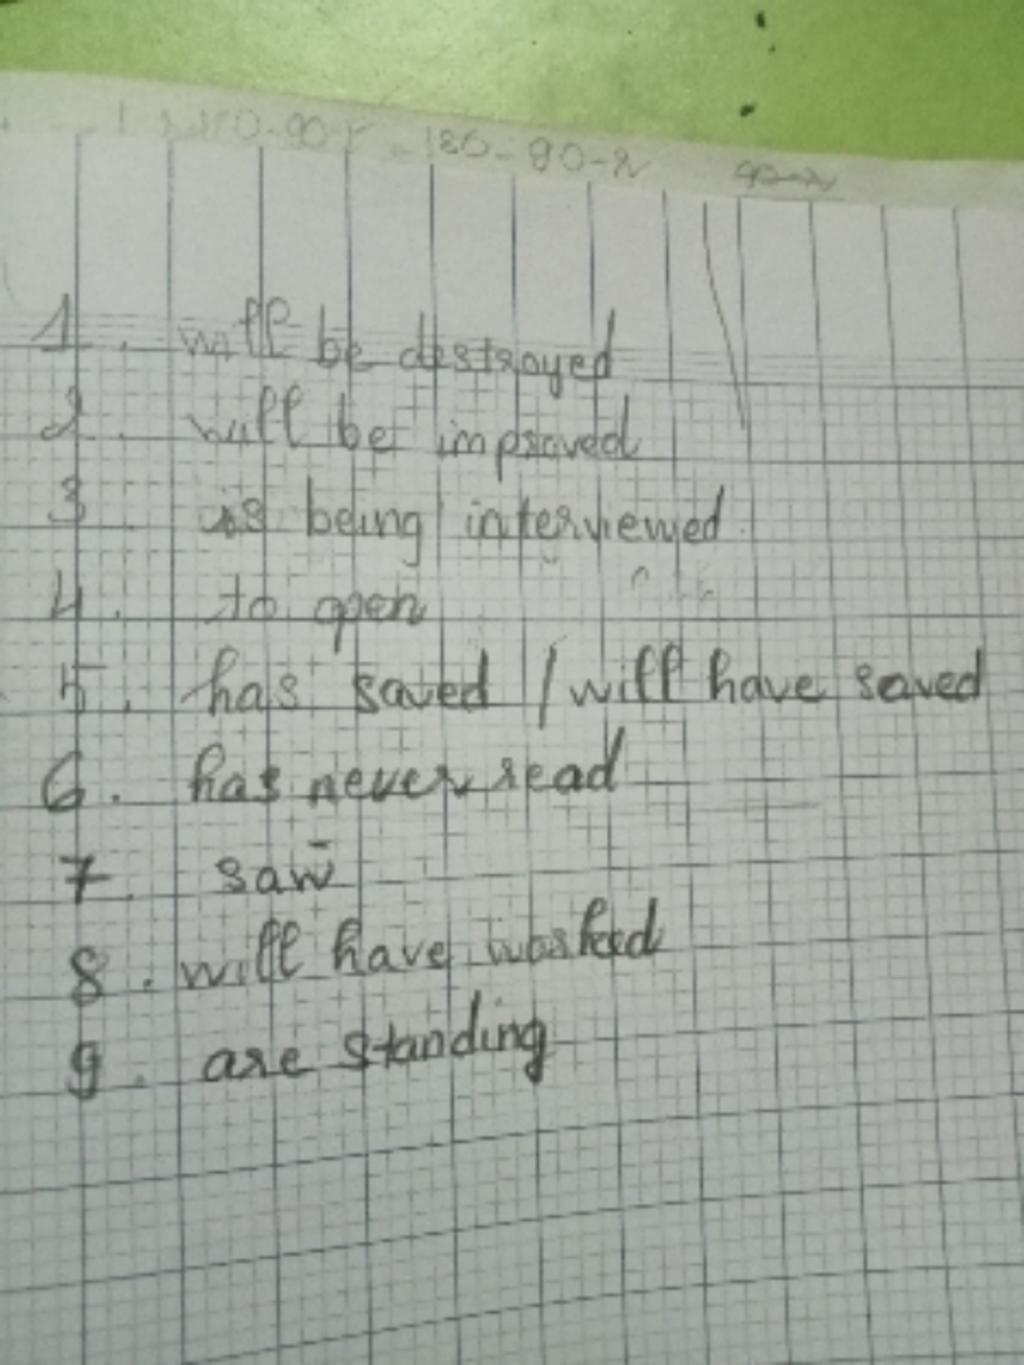 180-90-x
1. will be destroyed
2. will be improved
3. is being interviewed
4. to open
5. has saved / will have saved
6. has never read
7. saw
8. will have worked
9. are standing